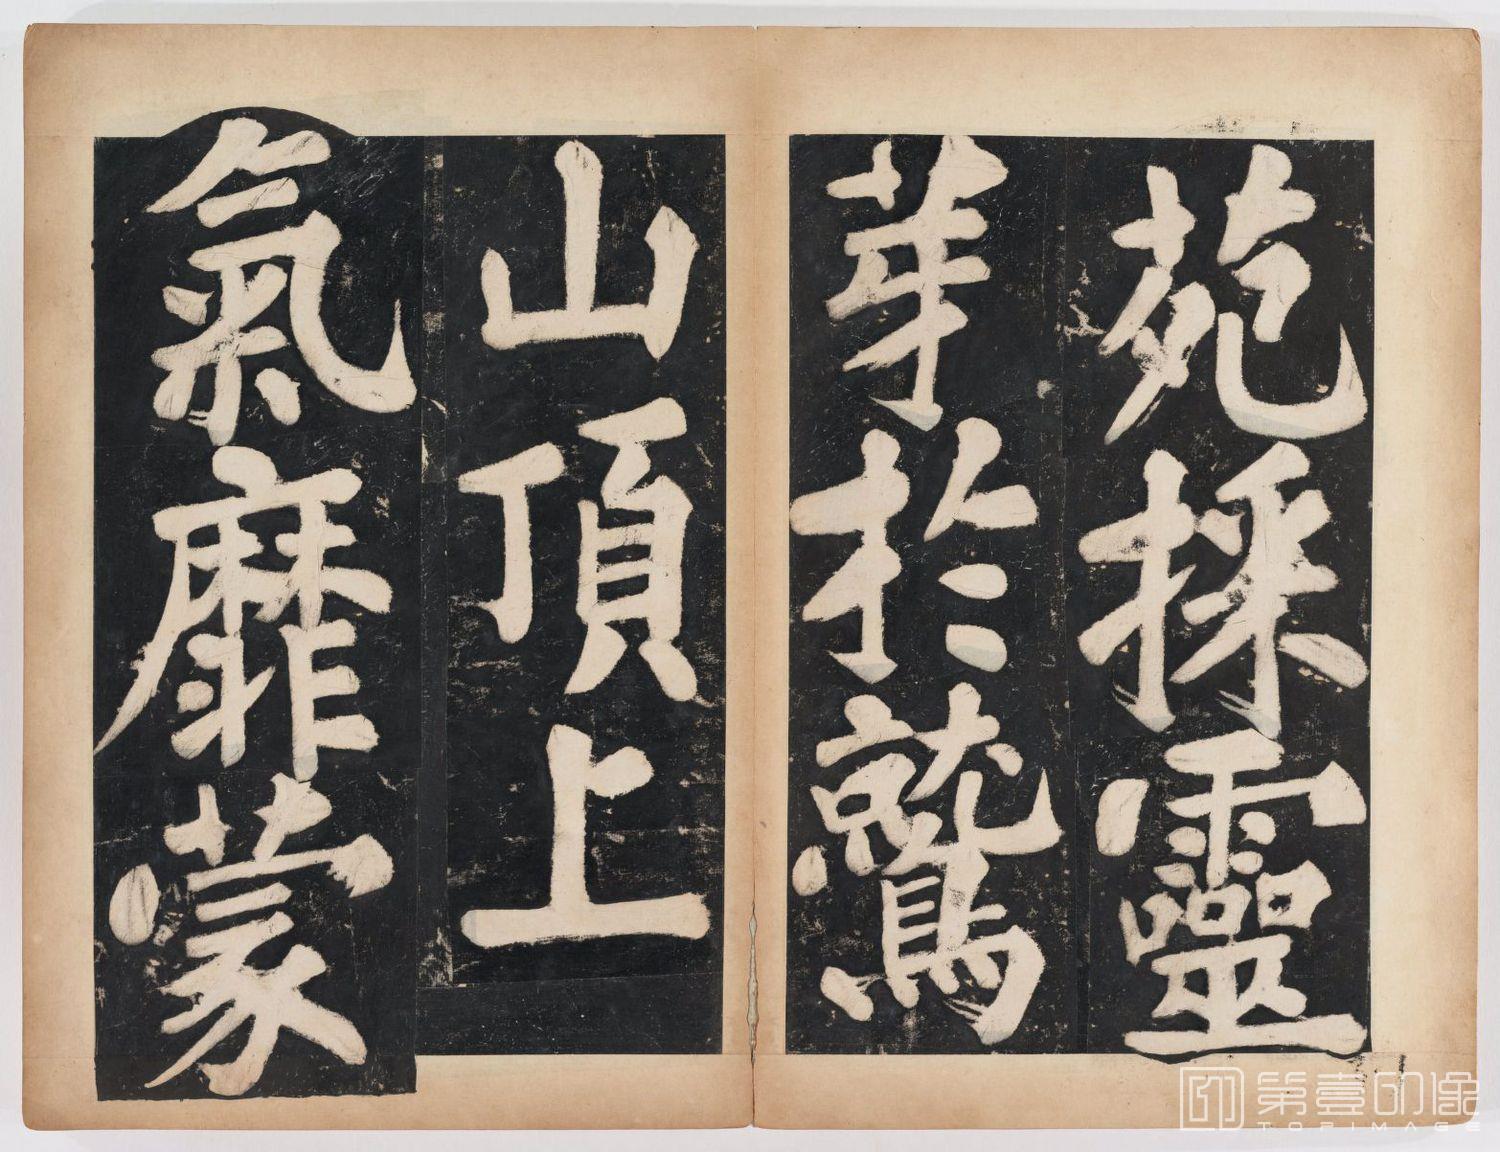 苑採靈
芽於鷲
山頂上
氣靡蒙
第壹印像
TOPIMAGE